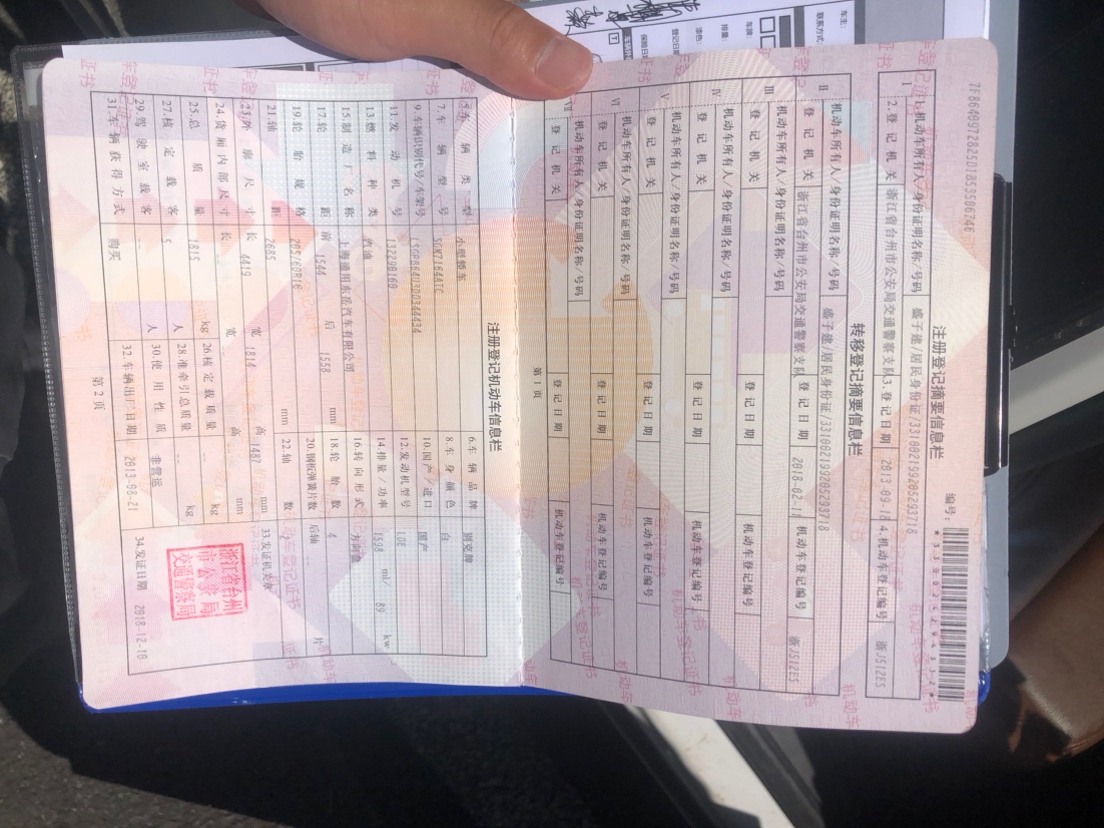 7F8640972825D1853506746
注册登记摘要信息栏
编号:
I
1.机动车所有人/身份证明名称/号码 盛子建/居民身份证/331002199205293718
2.登记机关 浙江省台州市公安局交通警察支队 3.登记日期 2013-09-18 4.机动车登记编号 浙JS12ES
转移登记摘要信息栏
II
机动车所有人/身份证明名称/号码 盛子建/居民身份证/331002199205293718
登记机关 浙江省台州市公安局交通警察支队 登记日期 2018-02-11 机动车登记编号 浙JS12ES
III
机动车所有人/身份证明名称/号码
登记机关 登记日期 机动车登记编号
IV
机动车所有人/身份证明名称/号码
登记机关 登记日期 机动车登记编号
V
机动车所有人/身份证明名称/号码
登记机关 登记日期 机动车登记编号
VI
机动车所有人/身份证明名称/号码
登记机关 登记日期 机动车登记编号
VII
机动车所有人/身份证明名称/号码
登记机关 登记日期 机动车登记编号
第1页
注册登记机动车信息栏
5.车辆类型 小型轿车 6.车辆品牌 别克牌
7.车辆型号 SGM7164ATC 8.车身颜色 白
9.车辆识别代号/车架号 LSGPB64U3DD344434 10.国产/进口 国产
11.发动机号 132290160 12.发动机型号 LDE
13.燃料种类 汽油 14.排量/功率 1598 ml/ 89 kw
15.制造厂名称 上海通用东岳汽车有限公司 16.转向形式 方向盘
17.轮距 前 1544 后 1558 mm 18.轮胎数 4
19.轮胎规格 205/60R16 20.钢板弹簧片数 后轴 片
21.轴距 2685 mm 22.轴数 2
23.外廓尺寸 长 4419 宽 1814 高 1487 mm
24.货厢内部尺寸 长 宽 高 mm
25.总质量 1815 kg 26.核定载质量 -- kg
27.核定载客 5 人 28.准牵引总质量 -- kg
29.驾驶室载客 -- 人 30.使用性质 非营运
31.车辆获得方式 购买 32.车辆出厂日期 2013-08-21
33.发证机关章
浙江省台州
市公安局
交通警察局
34.发证日期 2018-12-10
第2页
车主:
联系方式:
车牌:
排量:
漆色:
登记日期
保险日